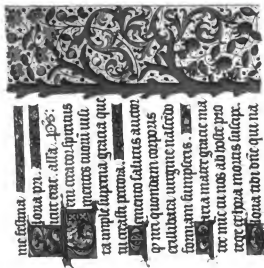 me festina
Gloria pri
sicut erat. alla. ymps:
Veni creator spiritus
mentes tuorum visi
ta imple superna gratia que
tu creasti pectora.
Memento salutis auctor
quondam corporis
ex illibata virgine nascendo
formam sumpseris.
Maria mater gratie ma
ter mie tu nos ab hoste pro
tege et hora mortis suscipe.
Gloria tibi dne qui na